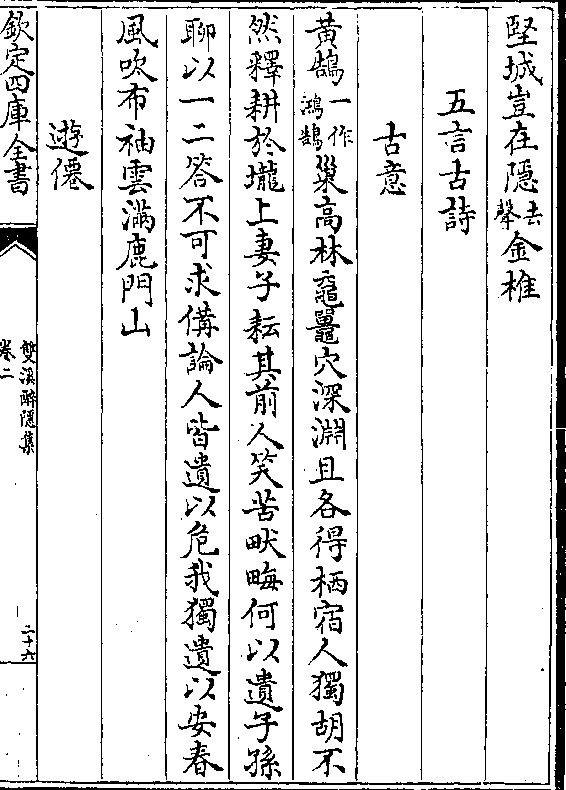 堅城豈在隱去聲金椎
五言古詩
古意
黃鵠一作鴻鵠巢高林黿鼉穴深淵且各得栖宿人獨胡不
然釋耕於壠上妻子耘其前人笑苦畎畮何以遺子孫
聊以一二答不可求備論人皆遺以危我獨遺以安春
風吹布袖雲滿鹿門山
遊僊
欽定四庫全書
雙溪醉隱集
卷二
二十六